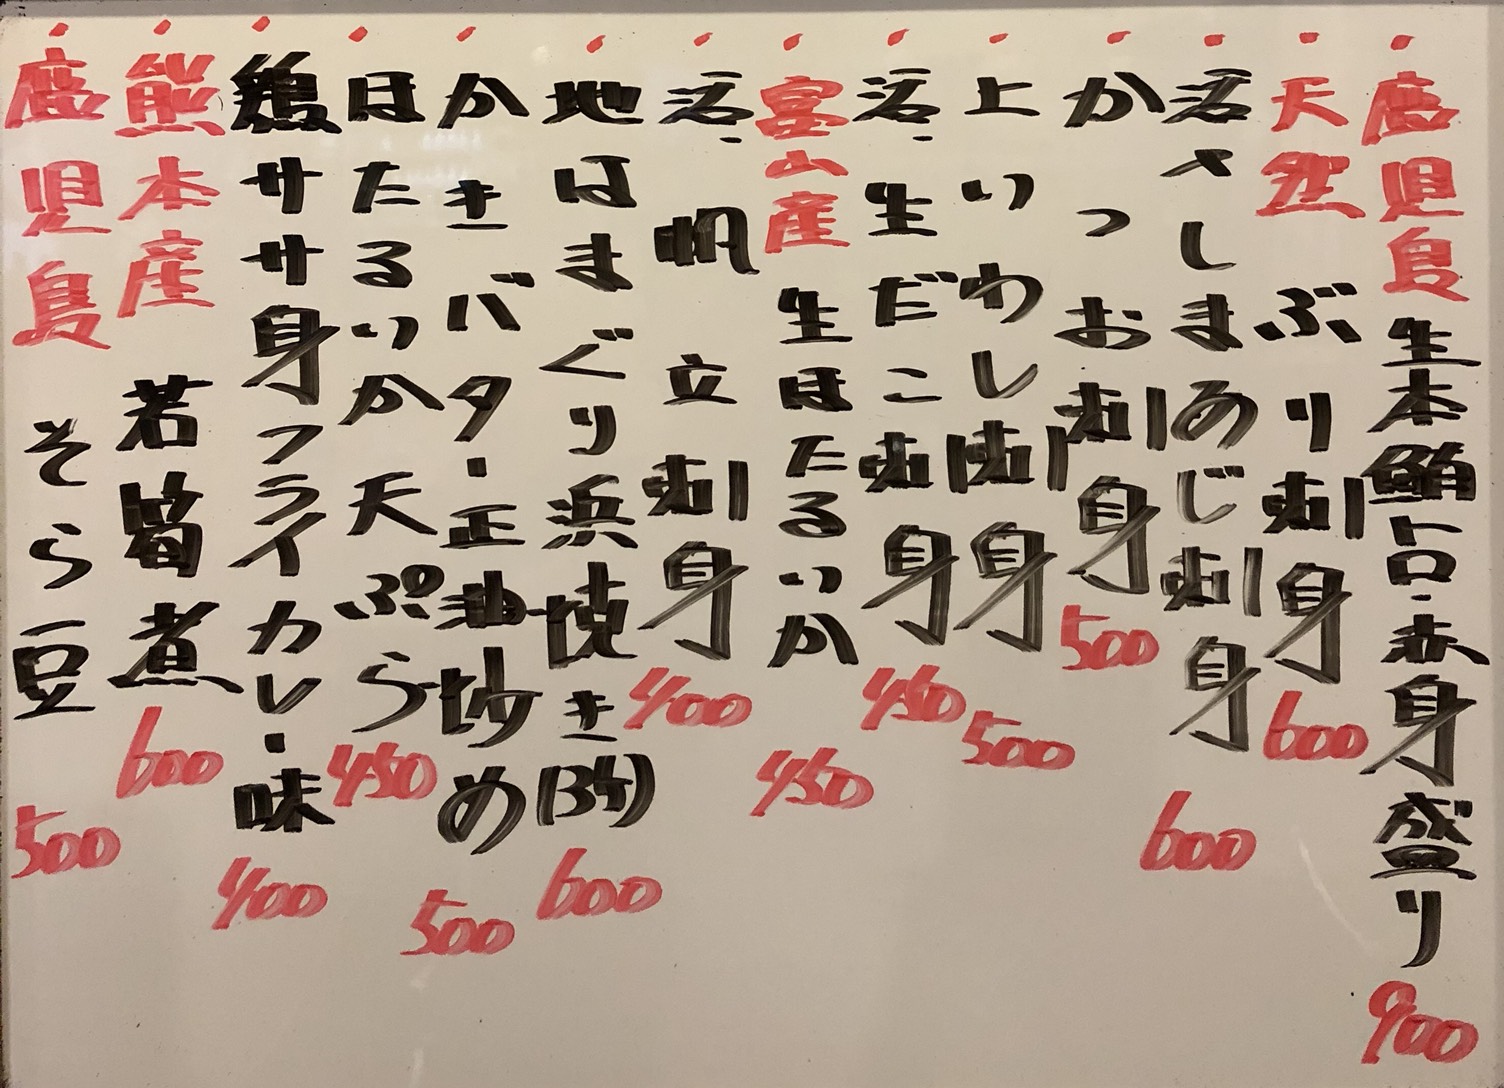 ・鹿児島生本鮪トロ・赤身盛り 900
・天然ぶり刺身 600
・活〆しまあじ刺身 600
・かつお刺身 500
・上いわし刺身 500
・活・生だこ刺身 450
・富山産生ほたるいか 450
・活・帆立刺身 400
・地はまぐり浜焼き(3ケ) 600
・かきバター正油炒め 500
・ほたるいか天ぷら 450
・鶏ササ身フライカレー味 400
・熊本産 若筍煮 600
・鹿児島 そら豆 500